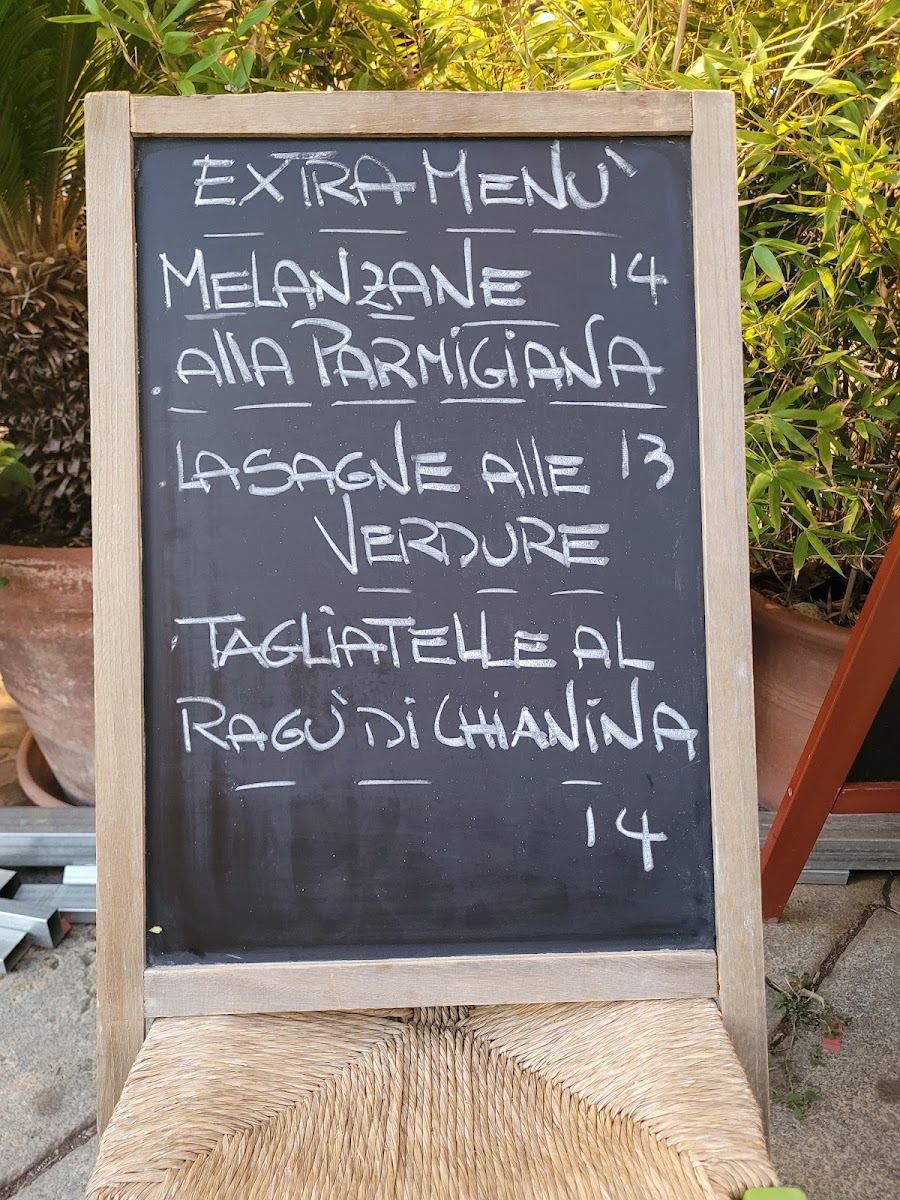 EXTRA MENU'
MELANZANE 14
allA PARMiGiANA
LASAGNE AllE 13
VERDURE
TAGLiATELLE AL
RAGU' Di CHiANiNA
14